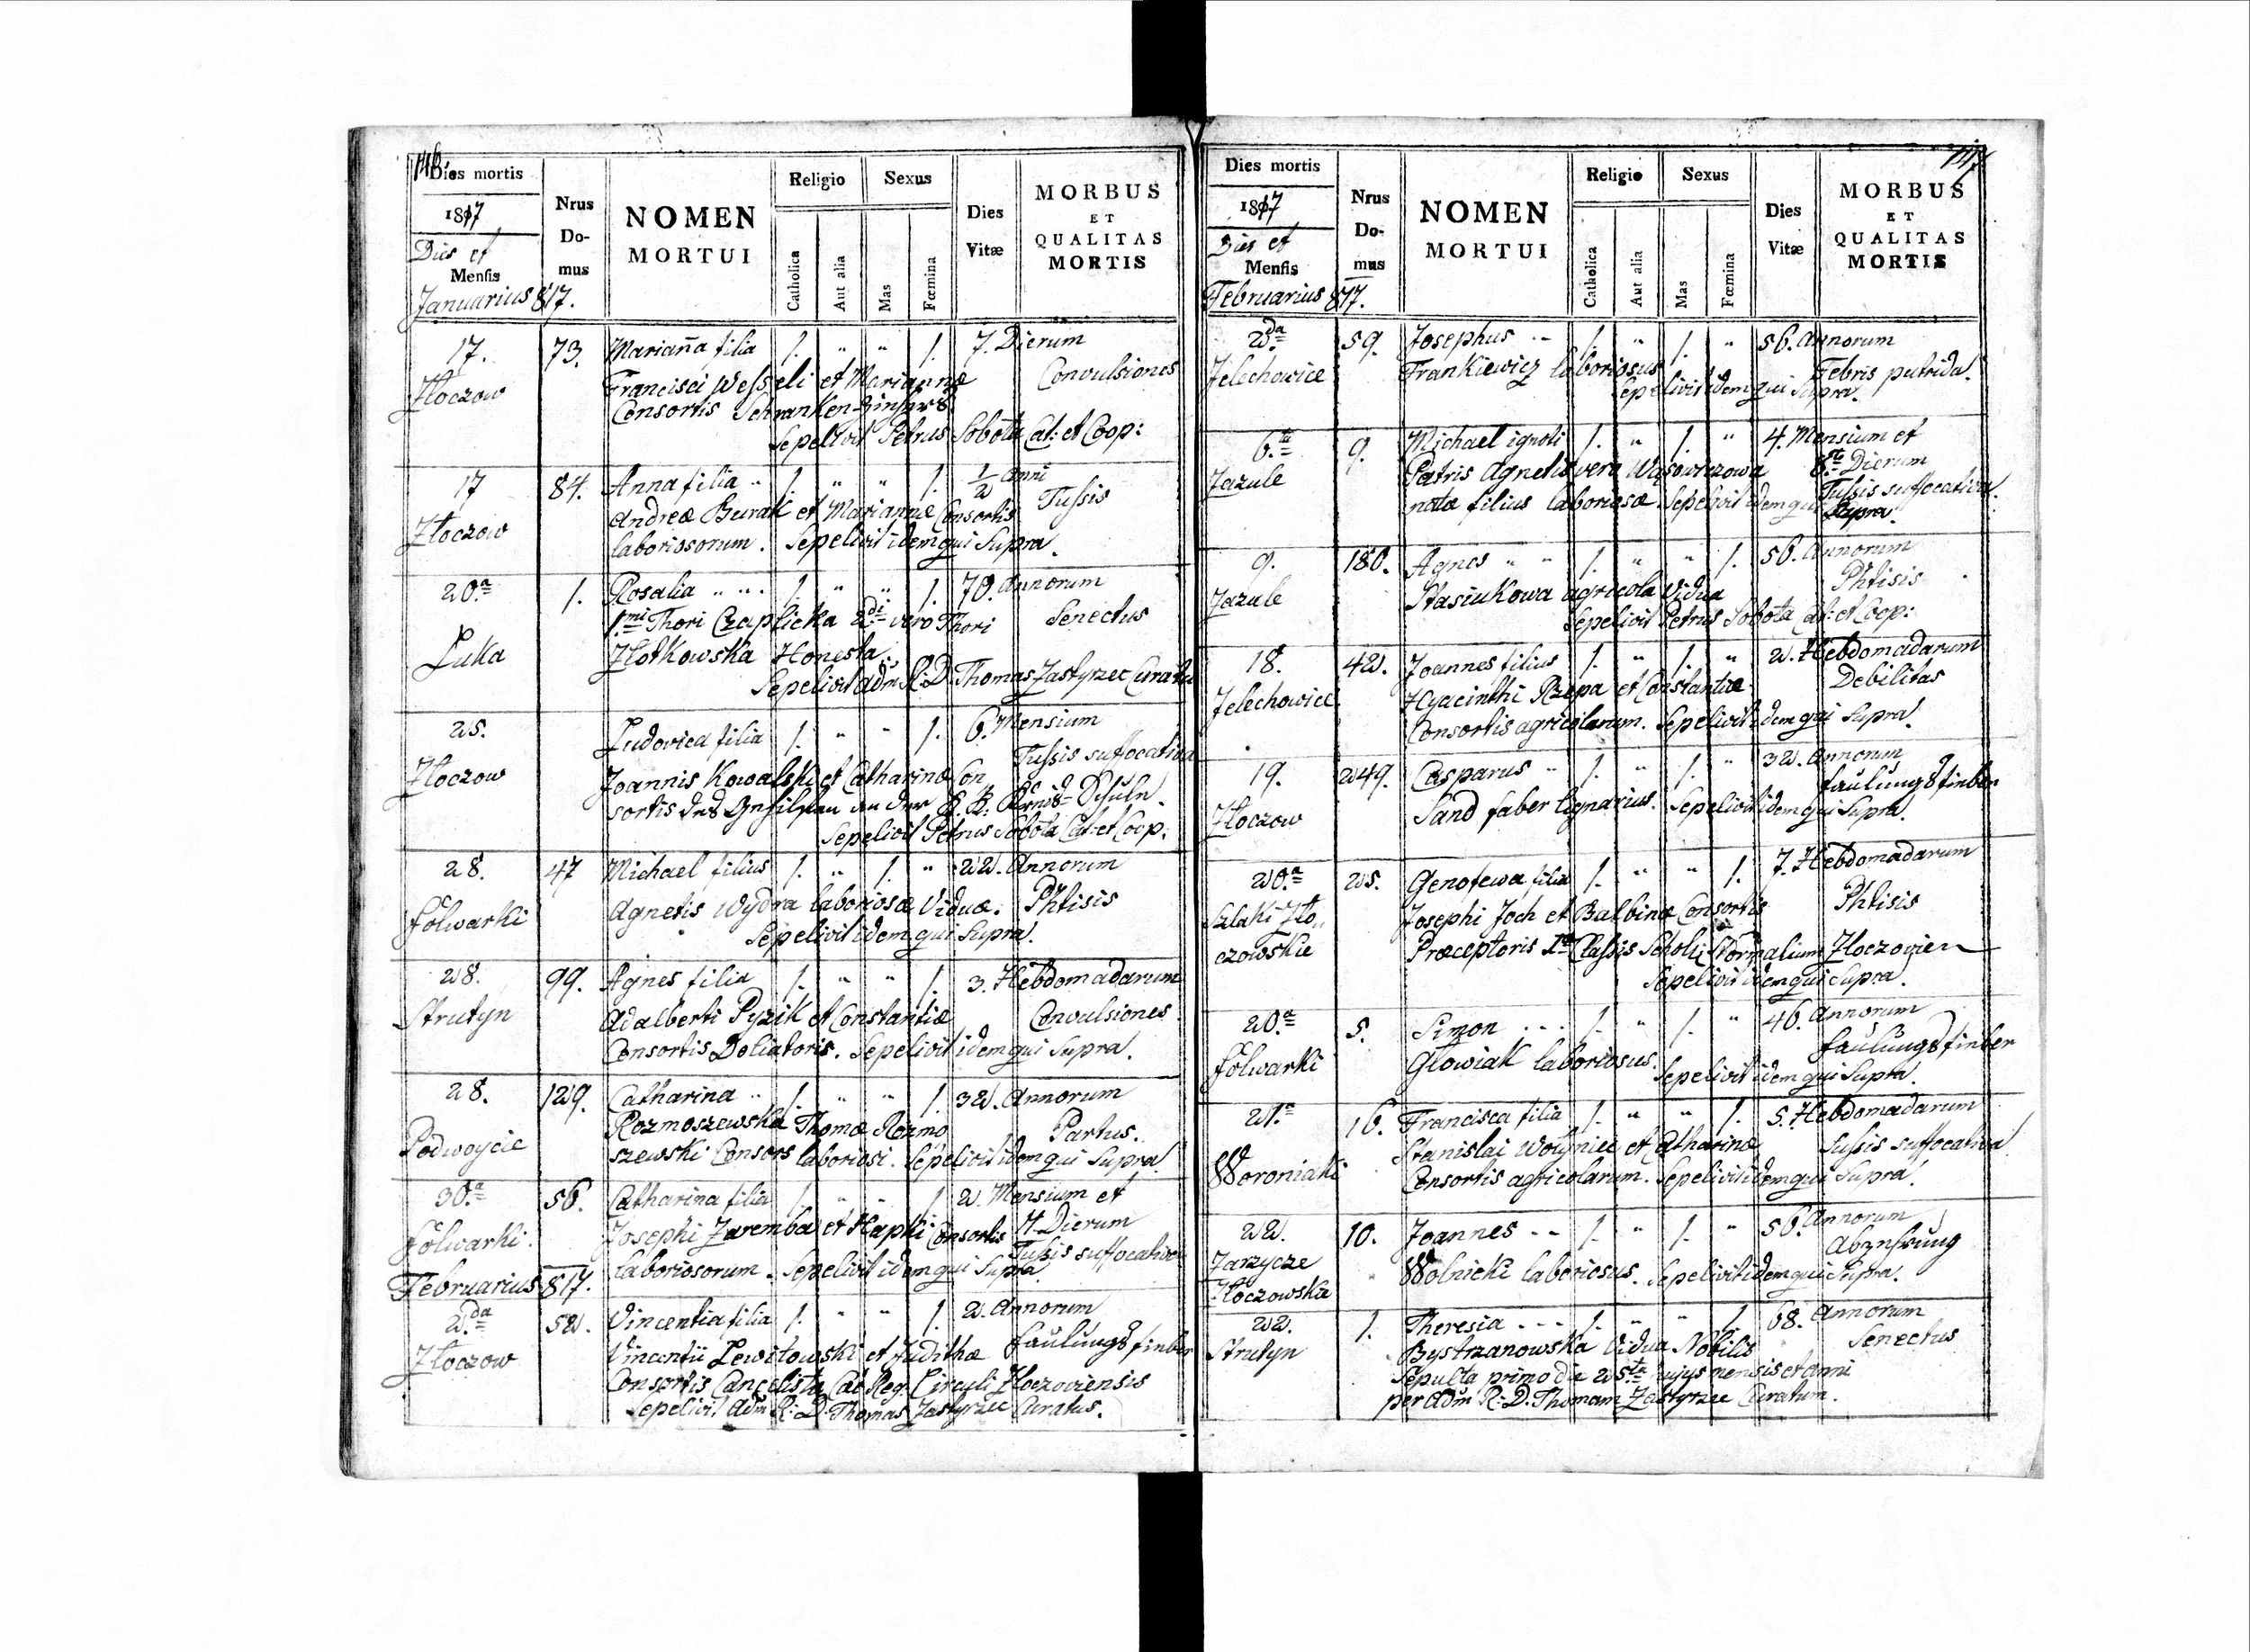 146
Dies mortis
1817
Dies et
Mensis
Januarius 817.
Nrus
Do-
mus
NOMEN
MORTUI
Religio
Catholica
Aut alia
Sexus
Mas
Fœmina
Dies
Vitæ
MORBUS
ET
QUALITAS
MORTIS
17. 73. Marianna filia 1. " " 1. 7. Dierum
Złoczow Francisci Wesseli et Mariannæ Convulsiones
Consortis
Sepelivit Petrus Sobota Cat: et Coop:
17 84. Anna filia " 1. " " 1. 1/2 Anni
Andreæ Burak et Mariannæ Consortis Tussis
Złoczow laboriosorum. Sepelivit idem qui Supra.
20.a 1. Rosalia " " " 1. " " 1. 70. Annorum
1.mi Thori Czaplicka 2.di vero Thori Senectus
Luka Złotkowska Honesta.
Sepelivit Adm R: D. Thomas Zastyrzec Curatus
25. Ludovica filia 1. " " 1. 6. Mensium
Tussis suffocativa
Złoczow Joannis Kowalski et Catharinæ Con
sortis des Gehilfen an der K. K. Kreis-Schule.
Sepelivit Petrus Sobota Cat: et Coop:
28. 47 Michael filius 1. " 1. " 22. Annorum
Folwarki Agnetis Wydra laboriosæ Viduæ. Phtisis
Sepelivit idem qui Supra.
28. 99. Agnes filia 1. " " 1. 3. Hebdomadarum
Strutyn Adalberti Pyzik et Constantiæ Convulsiones
Consortis Doliatoris. Sepelivit idem qui Supra.
28. 129. Catharina " 1. " " 1. 32. Annorum
Rozmoszewska Thomæ Rozmo Partus.
Podwoycie szewski Consors laboriosi. Sepelivit idem qui Supra
30.a 56. Catharina filia 1. " " 1. 2. Mensium et
Folwarki. Josephi Zaremba et Hapki Consortis 4. Dierum
Tussis suffocativa
laboriosorum. Sepelivit idem qui Supra
Februarius 817.
2.da 52. Vincentia filia 1. " " 1. 2. Annorum
Złoczow Vincentii Lewitowski et Judithæ Faulungsfieber
Consortis Cancelistæ Cæs Reg. Circuli Złoczoviensis
Sepelivit Adm R: D. Thomas Zastyrzec Curatus.
147
Dies mortis
1817
Dies et
Mensis
Februarius 817.
Nrus
Do-
mus
NOMEN
MORTUI
Religio
Catholica
Aut alia
Sexus
Mas
Fœmina
Dies
Vitæ
MORBUS
ET
QUALITAS
MORTIS
2.da 59. Josephus -- 1. " 1. " 56. Annorum
Jelechowice Frankiewicz laboriosus Febris putrida.
Sepelivit idem qui Supra.
6.ta 9. Michael ignoti 1. " 1. " 4. Mensium et
Patris Agnetis vero Wąsowiczowa Dierum
Zazule natæ filius laboriosæ Sepelivit idem qui Supra. Tussis suffocativa.
9. 180. Agnes " " 1. " " 1. 56. Annorum
Zazule Stasiukowa agricola Vidua Phtisis
Sepelivit Petrus Sobota Cat: et Coop:
18. 42. Joannes filius 1. " 1. " 2. Hebdomadarum
Jelechowice Hyacinthi Rzepa et Constantiæ Debilitas
Consortis agricolarum. Sepelivit idem qui Supra.
19. 249. Casparus " 1. " 1. " 32. Annorum
Faulungsfieber
Złoczow Sand faber lignarius. Sepelivit idem qui Supra.
20.a 25. Genofewa filia 1. " " 1. 7. Hebdomadarum
Szlaki Zło,, Josephi Joch et Balbinæ Consortis Phtisis
czowskie Præceptoris I.æ Classis Normalium Złoczovien
Sepelivit idem qui Supra.
20.a 5. Simon --- 1. " 1. " 46. Annorum
Folwarki Glowiak laboriosus. Faulungsfieber
Sepelivit idem qui Supra.
21.a 16. Francisca filia 1. " " 1. 5. Hebdomadarum
Stanislai Wołyniec et Catharinæ Tussis suffocativa
Woroniaki Consortis agricolarum. Sepelivit idem qui Supra.
22. 10. Joannes -- 1. " 1. " 56. Annorum
Zarzycze Wolnicki laboriosus. Sepelivit idem qui Supra. Abzehrung
Złoczowska
22. 1. Theresia --- 1. " " 1. 68. Annorum
Strutyn Bystrzanowska Vidua Nobilis Senectus
Sepulta primo die 25.ta hujus mensis et anni
per Adm R: D. Thomam Zastyrzec Curatum.